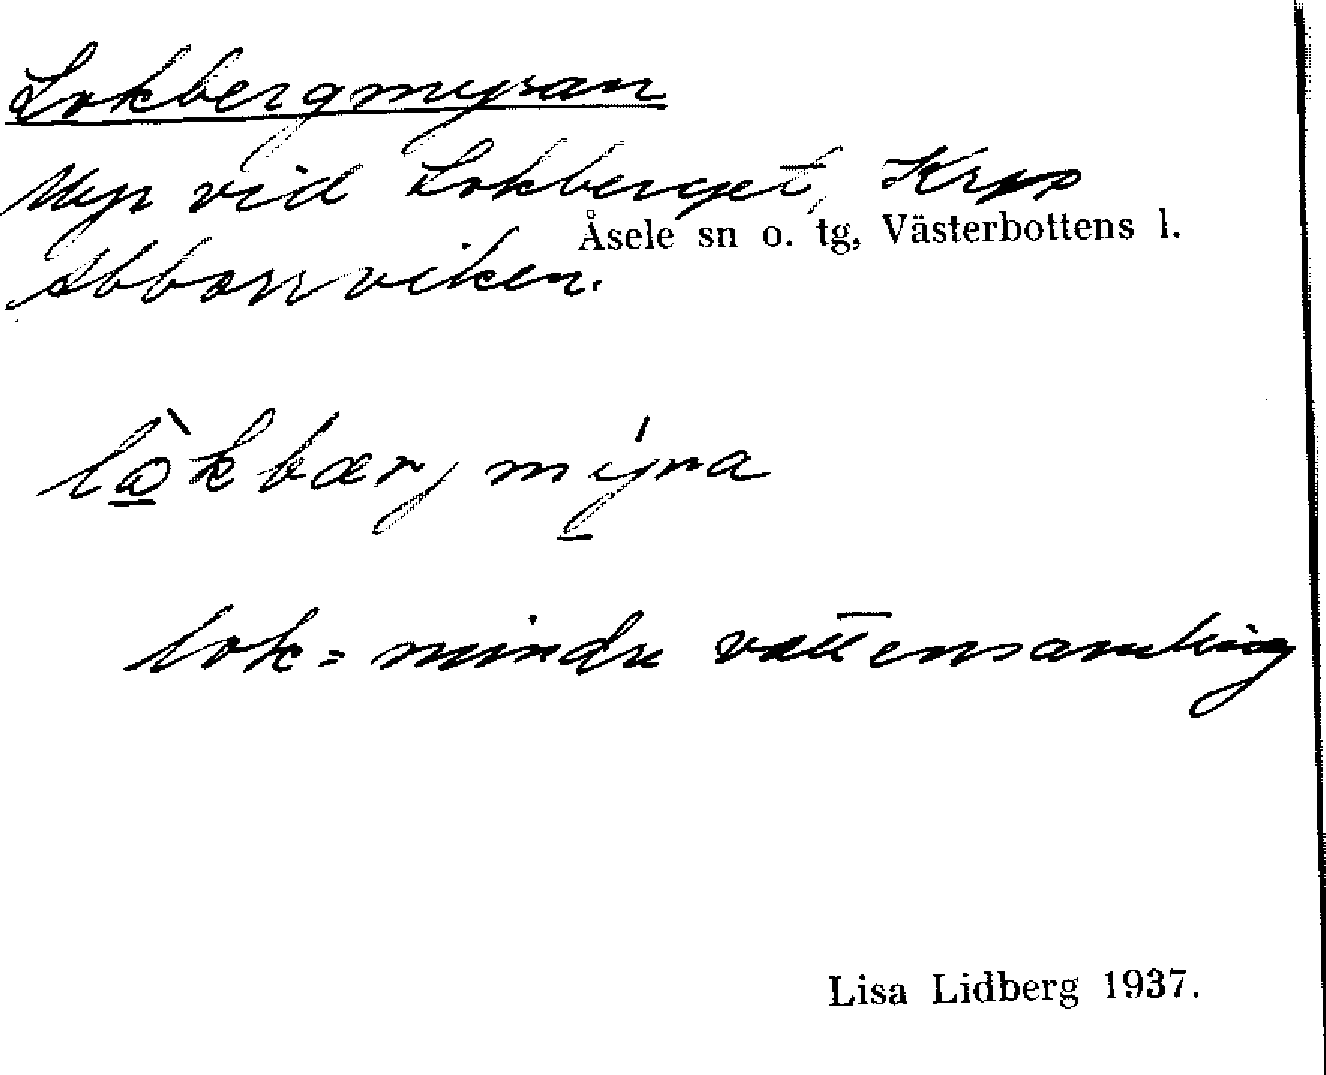 Lokbergmyran
Myr vid Lokberget, Krps
Åsele sn o. tg, Västerbottens l.
Abborrviken.
lò̱kbær, mýra
lok = mindre vattensamling
Lisa Lidberg 1937.